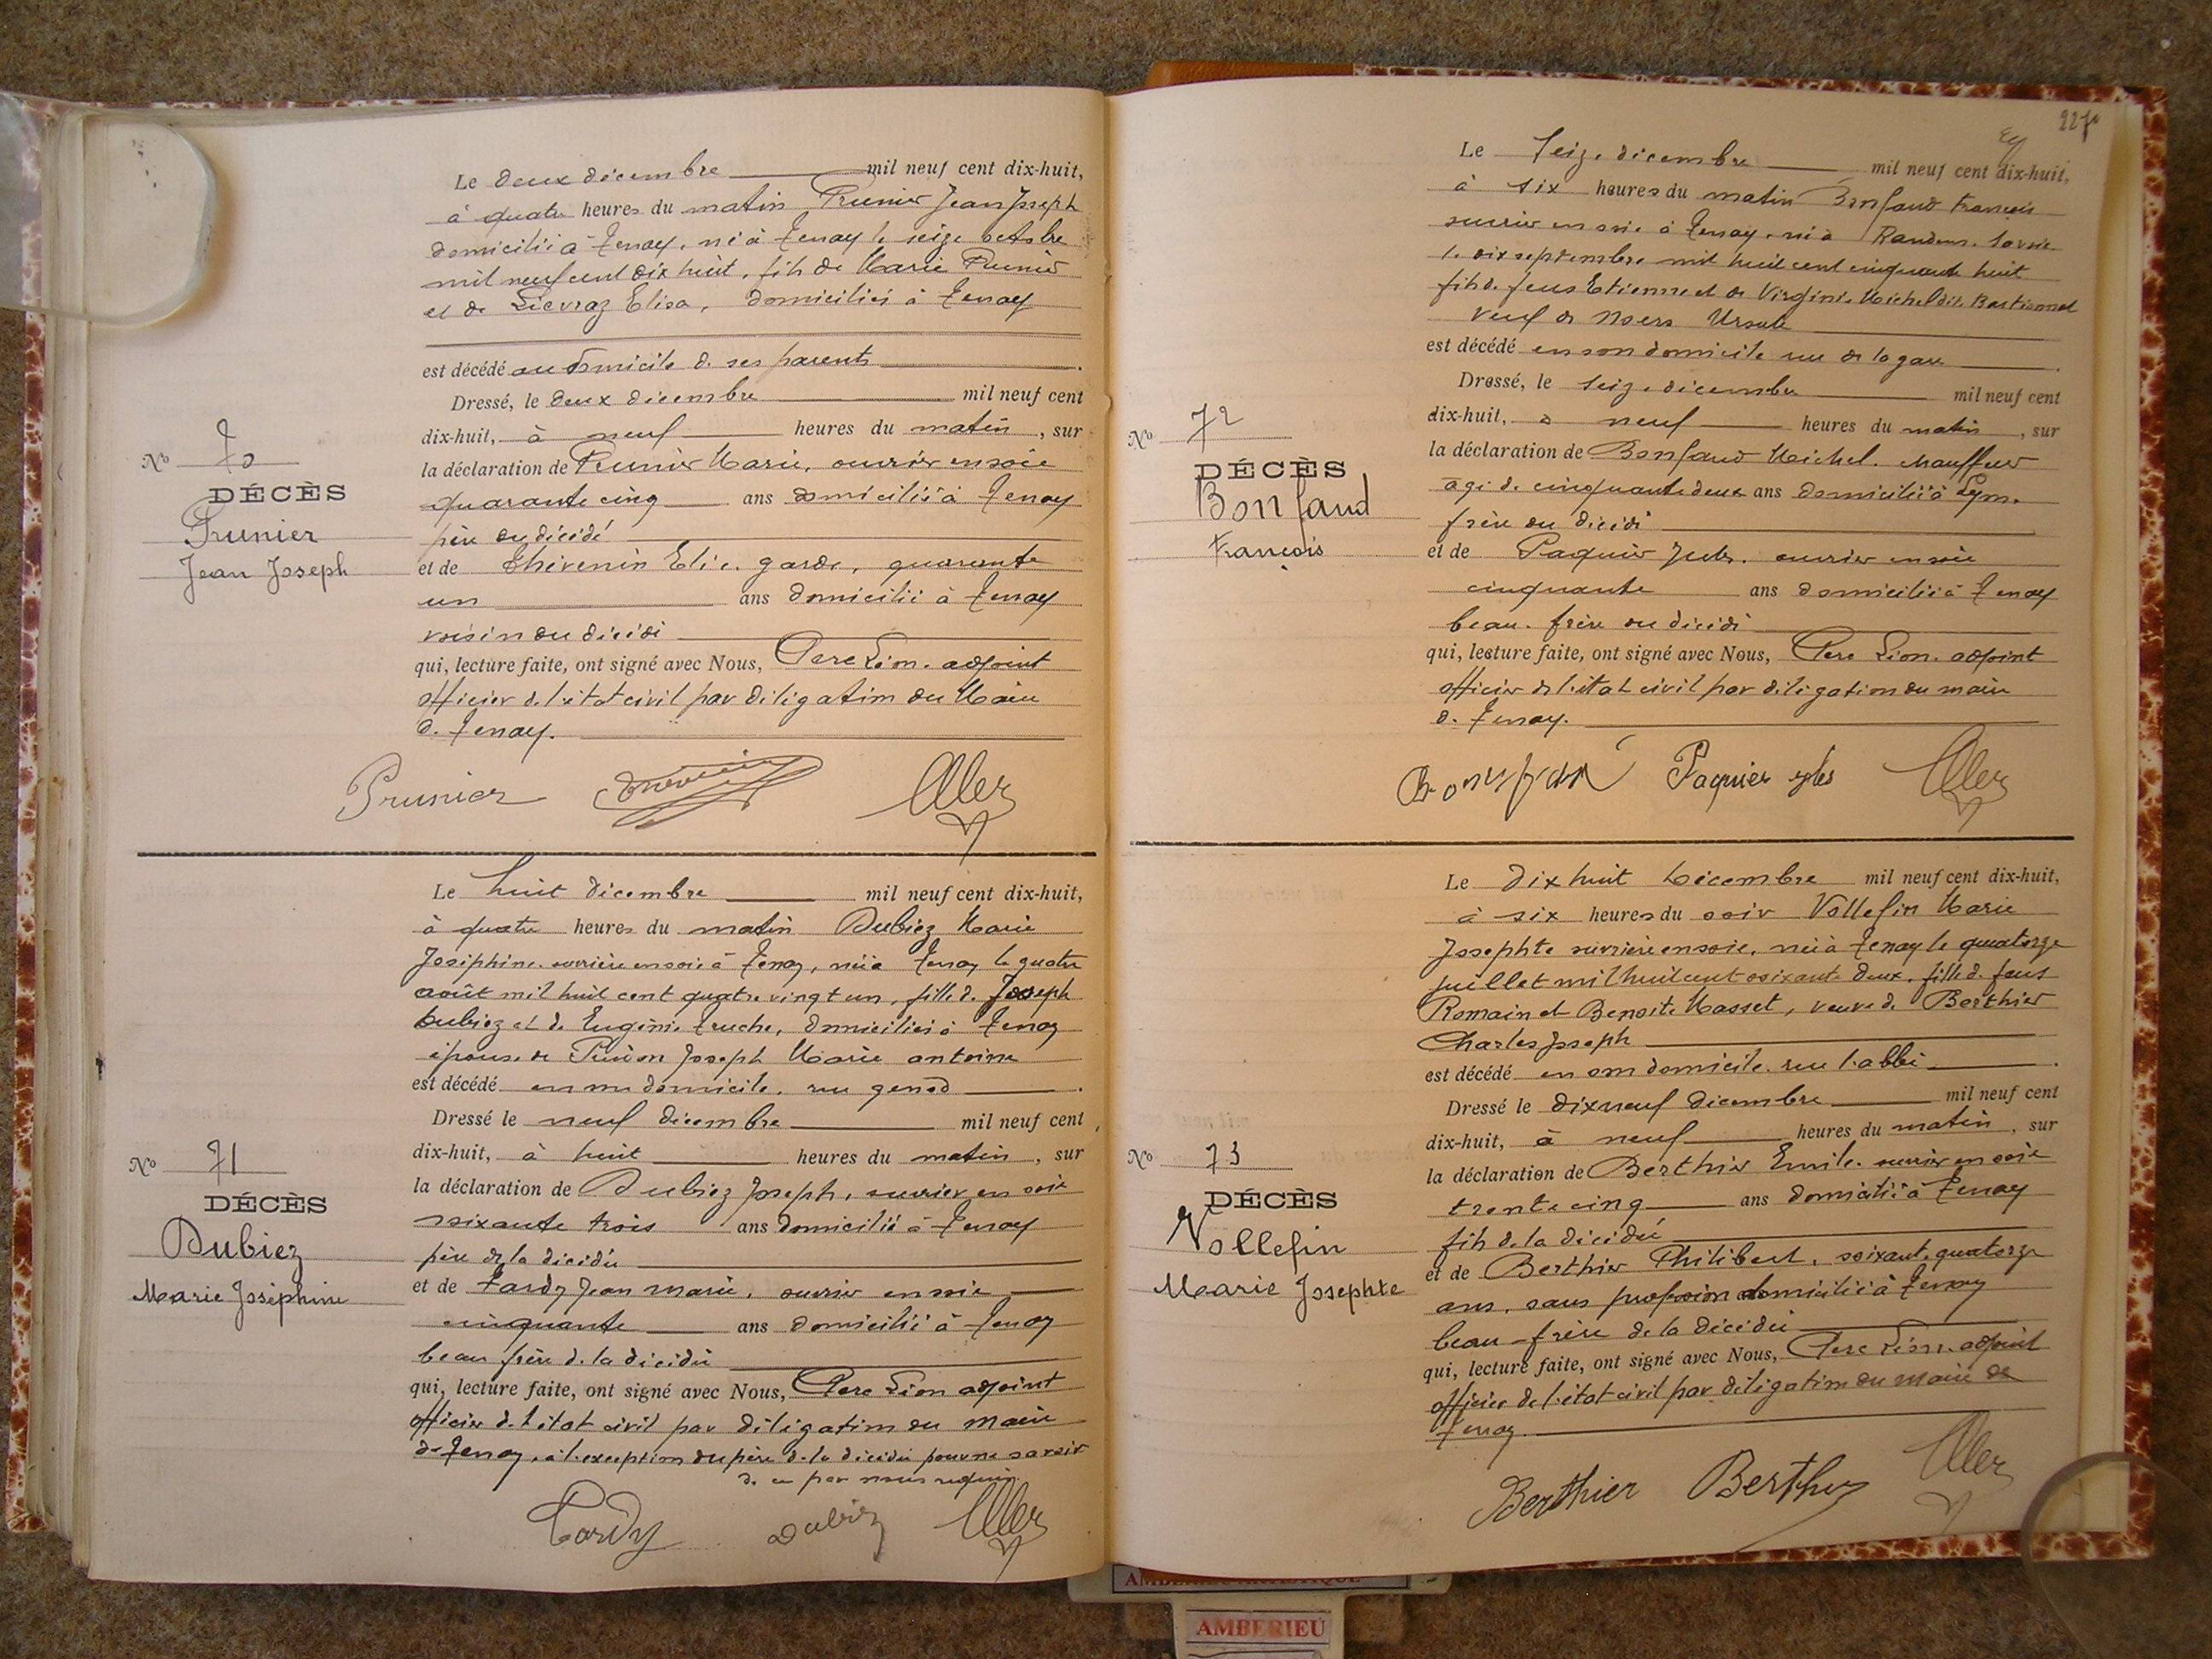 Le deux décembre mil neuf cent dix-huit,
à quatre heures du matin Prunier Jean Joseph
domicilié à Tenay, né à Tenay le seize octobre
mil neuf cent dix huit, fils de Marie Prunier
et de Lievraz Elisa, domiciliés à Tenay
est décédé au domicile de ses parents
Dressé, le deux décembre mil neuf cent
dix-huit, à neuf heures du matin, sur
la déclaration de Prunier Marie, ouvrier en soie
quarante cinq ans domicilié à Tenay
père du décédé
et de Thévenin Elie, garde, quarante
un ans domicilié à Tenay
voisin du décédé
qui, lecture faite, ont signé avec Nous, Pere Léon, adjoint
officier de l'état civil par délégation du Maire
de Tenay.
No 70
DÉCÈS
Prunier
Jean Joseph
Prunier
Le huit décembre mil neuf cent dix-huit,
à quatre heures du matin Dubiez Marie
Joséphine, ouvrière en soie à Tenay, née à Tenay le quatre
août mil huit cent quatre vingt un, fille de Joseph
Dubiez et de Eugénie Truche, domiciliés à Tenay
épouse de Joseph Marie antoine
est décédé en son domicile, rue genod
Dressé le neuf décembre mil neuf cent
dix-huit, à huit heures du matin, sur
la déclaration de Dubiez Joseph, ouvrier en soie
soixante trois ans domicilié à Tenay
père de la décédée
et de Tardy Jean marie, ouvrier en soie
cinquante ans domicilié à Tenay
beau frère de la décédée
qui, lecture faite, ont signé avec Nous, Pere Léon adjoint
officier de l'état civil par délégation du maire
de Tenay, à l'exception du père de la décédée pour ne savoir
de ce par nous requis.
No 71
DÉCÈS
Dubiez
Marie Joséphine
Tardy Dubiez
227
Le Seize décembre mil neuf cent dix-huit,
à six heures du matin Bonfand François
ouvrier en soie à Tenay, né à Randens, Savoie
le dix septembre mil huit cent cinquante huit
fils de feus Etienne et de Virginie Michel dit
veuf de Ursule
est décédé en son domicile rue de la gare
Dressé, le seize décembre mil neuf cent
dix-huit, à neuf heures du matin, sur
la déclaration de Bonfand Michel, chauffeur
agé de cinquante deux ans domicilié à Lyon,
frère du décédé
et de Paquier Jules, ouvrier en soie
cinquante ans domicilié à Tenay
beau-frère du décédé
qui, lecture faite, ont signé avec Nous, Pere Léon, adjoint
officier de l'état civil par délégation du maire
de Tenay.
No 72
DÉCÈS
Bonfand
François
Paquier Jules
Le Dix huit Décembre mil neuf cent dix-huit,
à six heures du soir Vollefin Marie
Josephte ouvrière en soie, née à Tenay le quatorze
juillet mil huit cent soixante deux, fille de feus
Romain et Benoite Masset, veuve de Berthier
Charles Joseph
est décédé en son domicile, rue l'abbé
Dressé le dix neuf décembre mil neuf cent
dix-huit, à neuf heures du matin, sur
la déclaration de Berthier Emile, ouvrier en soie
trente cinq ans domicilié à Tenay
fils de la décédée
et de Berthier Philibert, soixante quatorze
ans, sans profession domicilié à Tenay
beau-frère de la décédée
qui, lecture faite, ont signé avec Nous, Pere Léon, adjoint
officier de l'état civil par délégation du Maire de
Tenay
No 73
DÉCÈS
Vollefin
Marie Josephte
Berthier Berthier
AMBERIEU